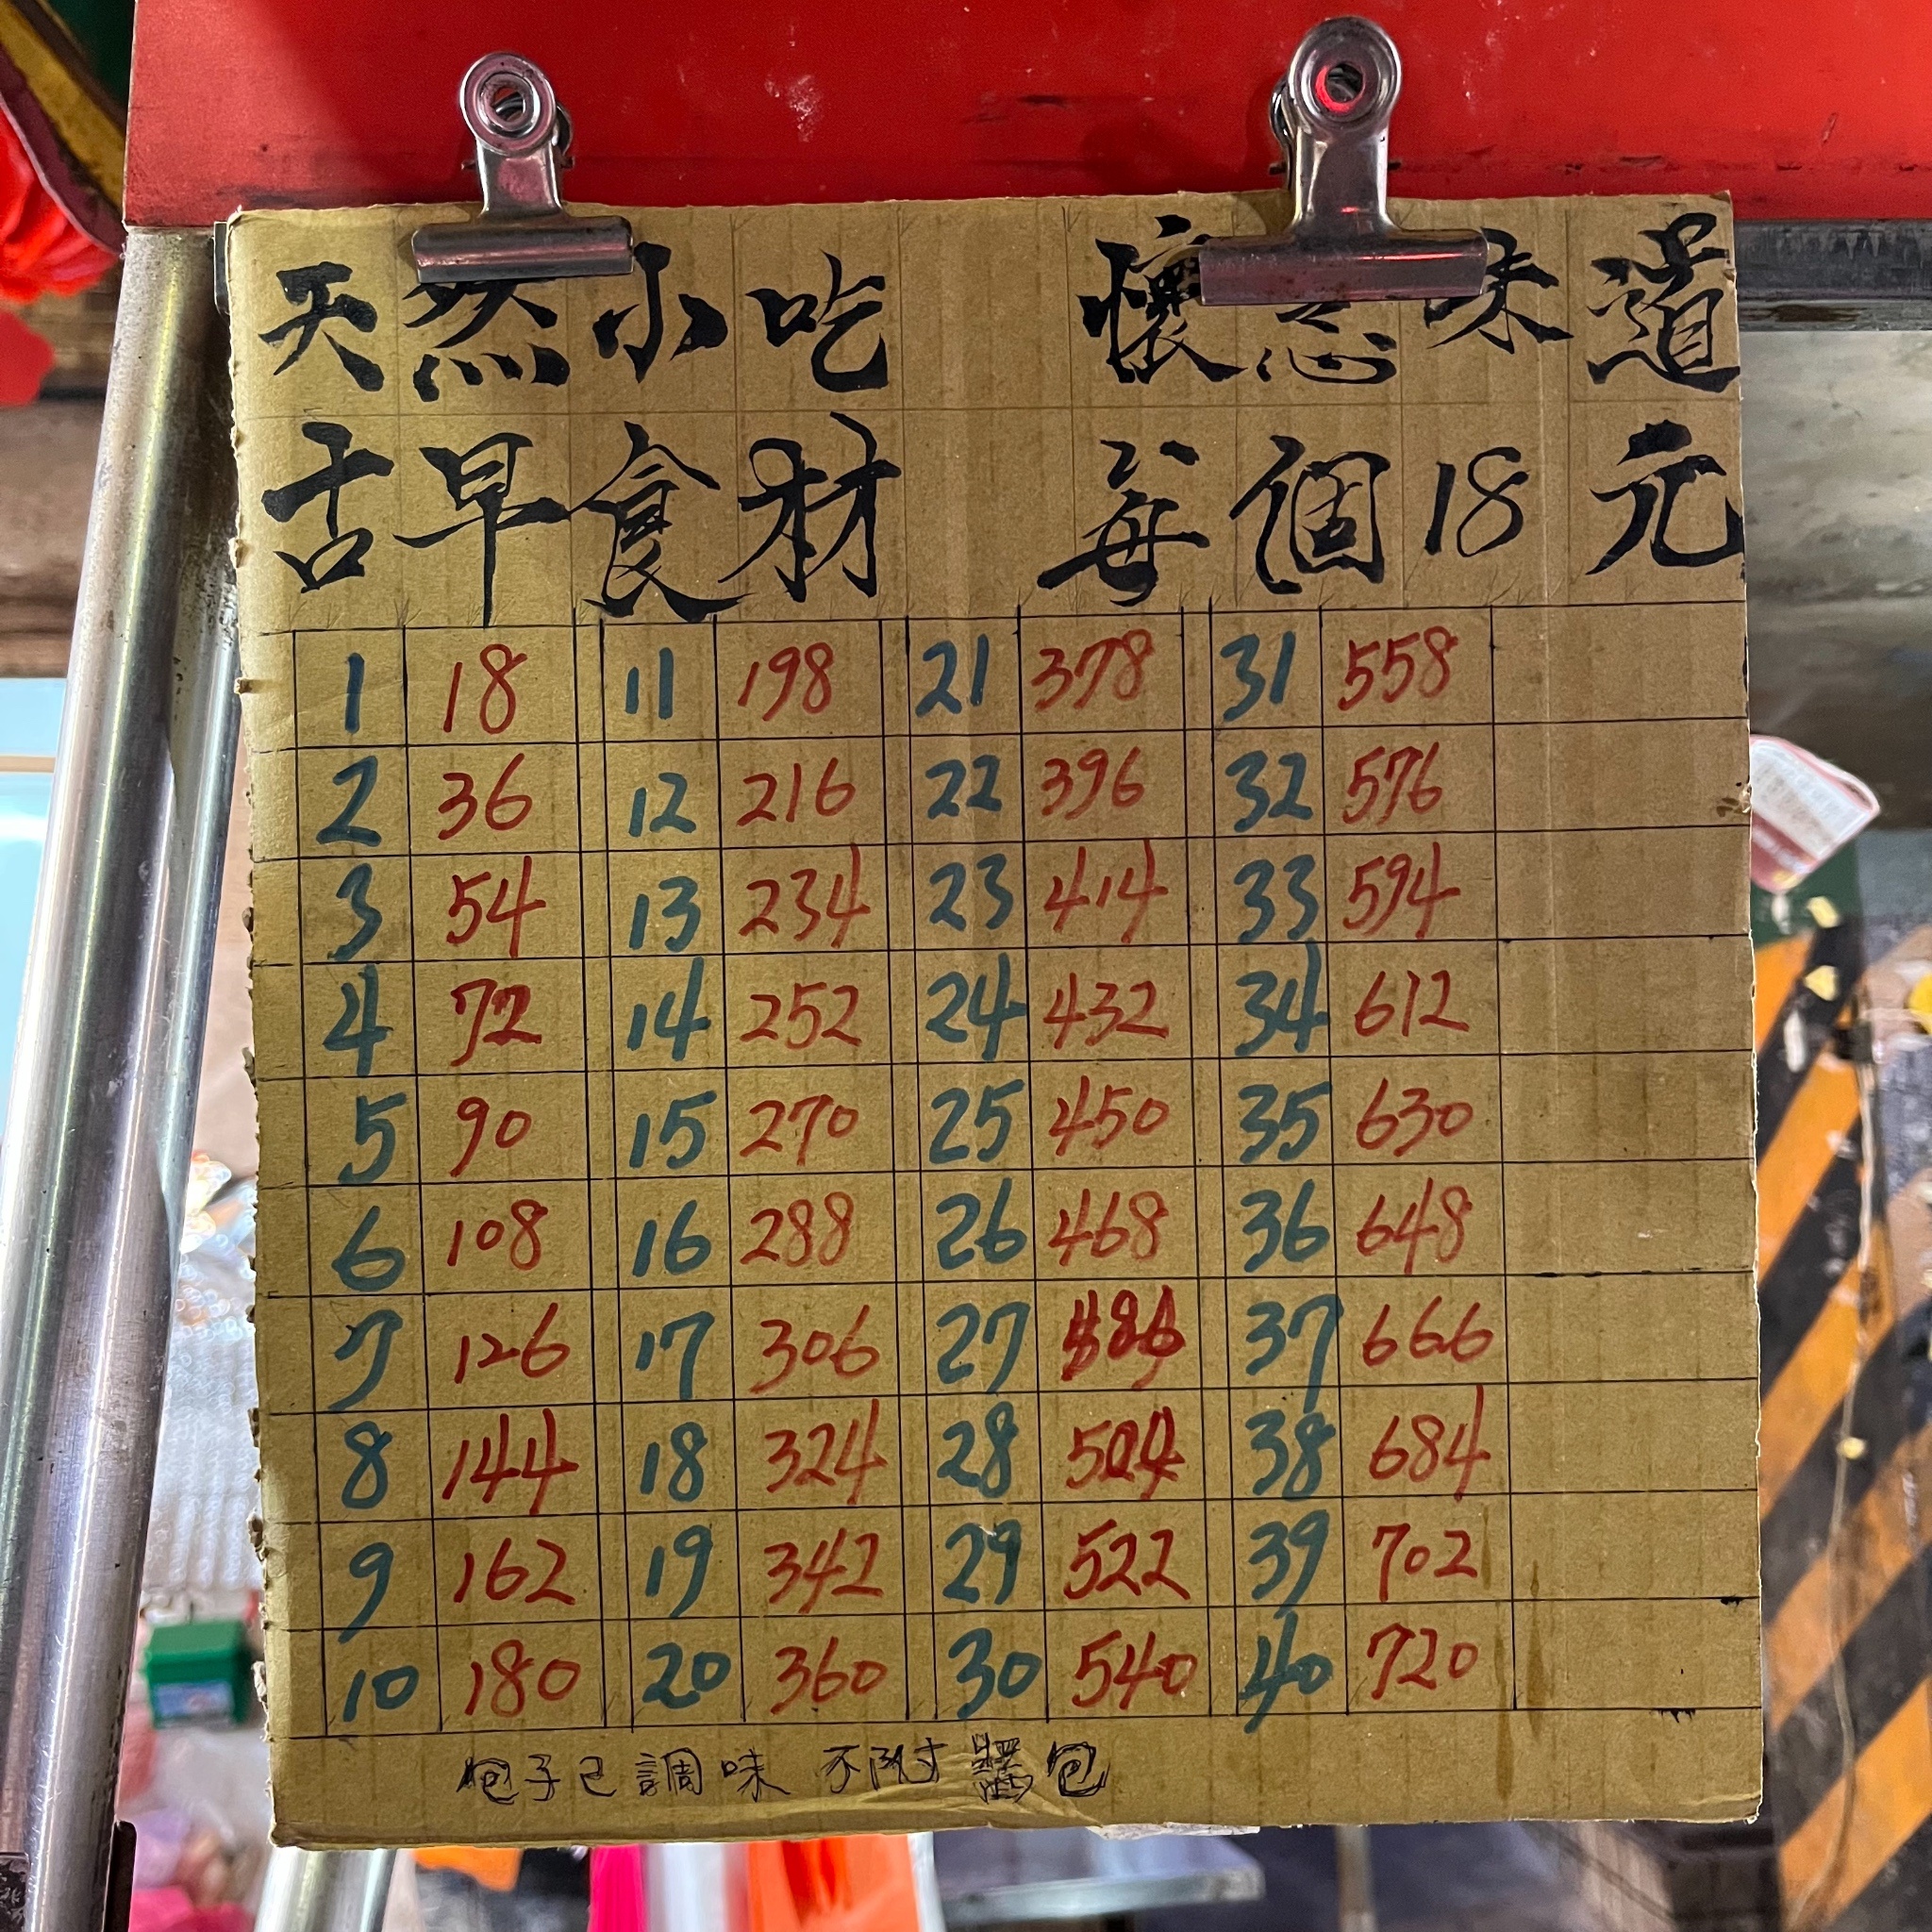 天然小吃 懷念味道
古早食材 每個18元
1 18 11 198 21 378 31 558
2 36 12 216 22 396 32 576
3 54 13 234 23 414 33 594
4 72 14 252 24 432 34 612
5 90 15 270 25 450 35 630
6 108 16 288 26 468 36 648
7 126 17 306 27 486 37 666
8 144 18 324 28 504 38 684
9 162 19 342 29 522 39 702
10 180 20 360 30 540 40 720
包子已調味 不附醬包